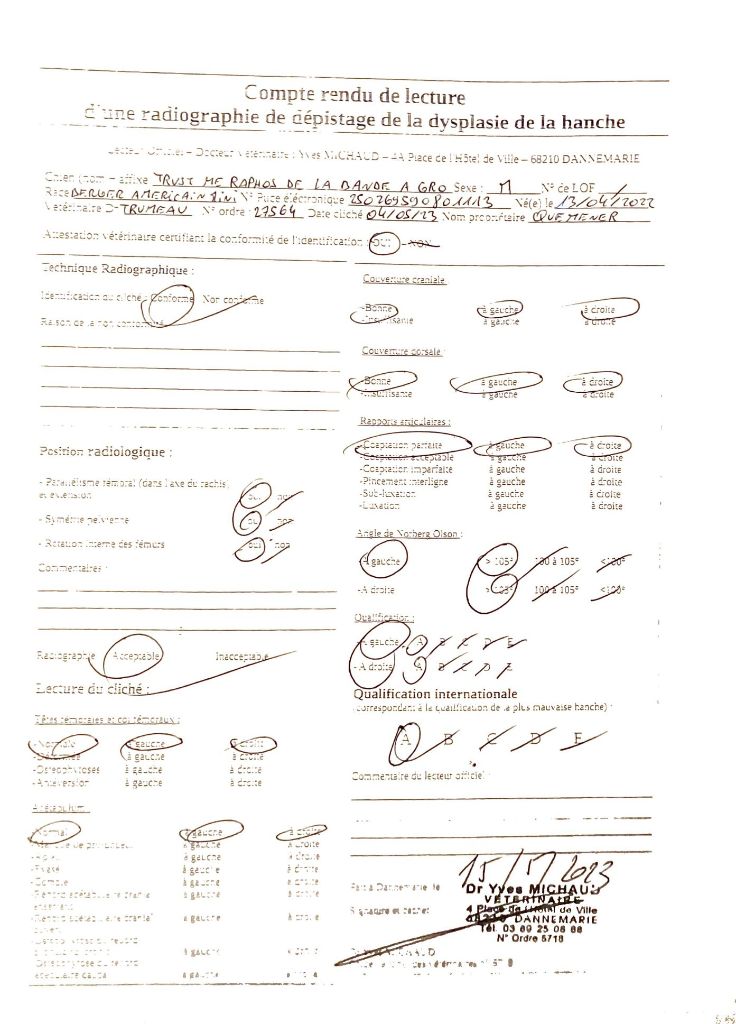 Compte rendu de lecture
d'une radiographie de dépistage de la dysplasie de la hanche
Lecteur Officiel – Docteur Vétérinaire : Yves MICHAUD – 4A Place de l'Hôtel de Ville – 68210 DANNEMARIE
Chien (nom – affixe TRUST ME RAPHOS DE LA BANDE A GRO Sexe : M N° de LOF /
Race BERGER AMERICAIN Mini N° Puce électronique 250269590801113 Né(e) le 13/04/2022
Vétérinaire Dr TRUMEAU N° ordre : 27564 Date cliché 04/05/23 Nom propriétaire QUEMENER
Attestation vétérinaire certifiant la conformité de l'identification : OUI - NON
Technique Radiographique :
Identification du cliché : Conforme Non conforme
Raison de la non conformité
Position radiologique :
- Parallélisme fémoral (dans l'axe du rachis
et extension oui non
- Symétrie pelvienne oui non
- Rotation interne des fémurs oui non
Commentaires :
Radiographie Acceptable Inacceptable
Lecture du cliché :
Têtes fémorales et cols fémoraux :
-Normale à gauche à droite
-Déformée à gauche à droite
-Ostéophytoses à gauche à droite
-Antéversion à gauche à droite
Acétabulum :
-Normal à gauche à droite
-Manque de profondeur à gauche à droite
à gauche à droite
-Evasé à gauche à droite
-Comblé à gauche à droite
-Rebord acétabulaire cranial
à gauche à droite
-Rebord acétabulaire cranial
à gauche à droite
à gauche à droite
acétabulaire caudal à gauche à droite
Couverture craniale
-Bonne à gauche à droite
-Insuffisante à gauche à droite
Couverture dorsale :
-Bonne à gauche à droite
-Insuffisante à gauche à droite
Rapports articulaires :
-Coaptation parfaite à gauche à droite
-Coaptation acceptable à gauche à droite
-Coaptation imparfaite à gauche à droite
-Pincement interligne à gauche à droite
-Sub-luxation à gauche à droite
-Luxation à gauche à droite
Angle de Norberg Olson :
-A gauche > 105° 100 à 105° <100°
-A droite >105° 100 à 105° <100°
Qualification :
-A gauche A B C D E
- A droite A B C D E
Qualification internationale
(correspondant à la qualification de la plus mauvaise hanche) :
A B C D E
Commentaire du lecteur officiel :
Fait à Dannemarie le 15/5/2023
Signature et cachet
Dr Yves MICHAUD
VÉTÉRINAIRE
4 Place de l'Hôtel de Ville
68210 DANNEMARIE
Tél. 03 89 25 08 88
N° Ordre 5718